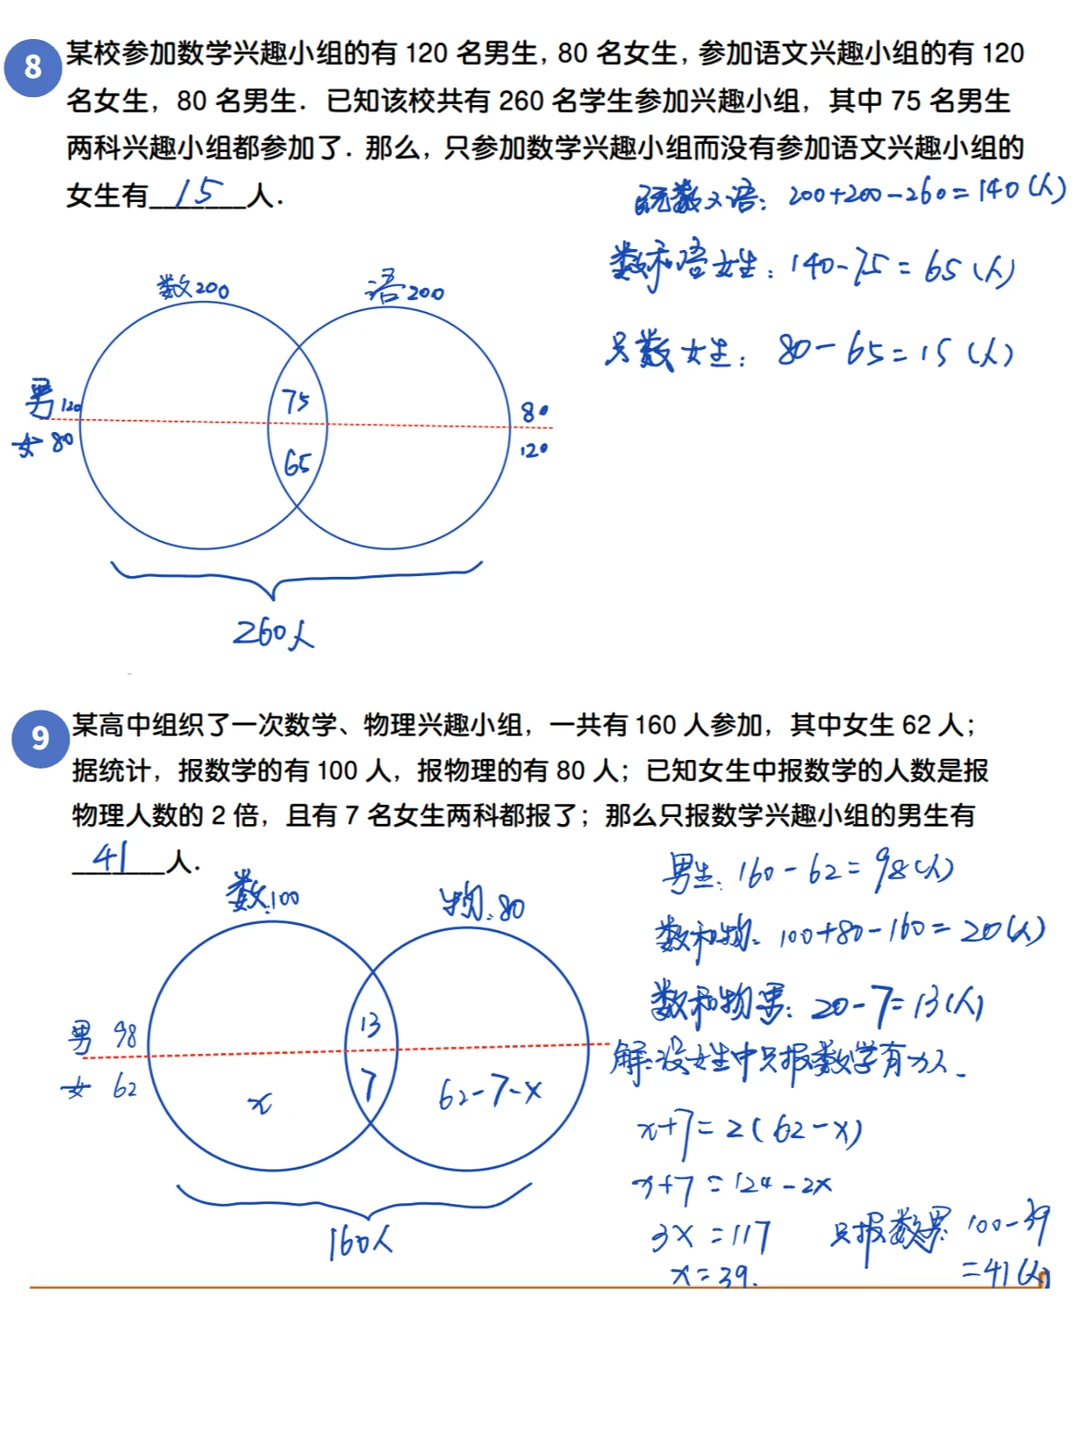 8
某校参加数学兴趣小组的有 120 名男生, 80 名女生, 参加语文兴趣小组的有 120
名女生, 80 名男生. 已知该校共有 260 名学生参加兴趣小组, 其中 75 名男生
两科兴趣小组都参加了. 那么, 只参加数学兴趣小组而没有参加语文兴趣小组的
女生有 15 人.
数又语: 200+200-260=140(人)
数和语女生: 140-75=65(人)
只数女生: 80-65=15(人)
数200 语200
男120 75 80
女80 65 120
260人
9
某高中组织了一次数学、物理兴趣小组, 一共有 160 人参加, 其中女生 62 人;
据统计, 报数学的有 100 人, 报物理的有 80 人; 已知女生中报数学的人数是报
物理人数的 2 倍, 且有 7 名女生两科都报了; 那么只报数学兴趣小组的男生有
41 人.
数:100 物:80
男 98 13
女 62 x 7 62-7-x
160人
男生: 160-62=98(人)
数和物: 100+80-160=20(人)
数和物男: 20-7=13(人)
解:设女生中只报数学有x人.
x+7=2(62-x)
x+7=124-2x
3x=117
x=39.
只报数男: 100-39
=41(人)